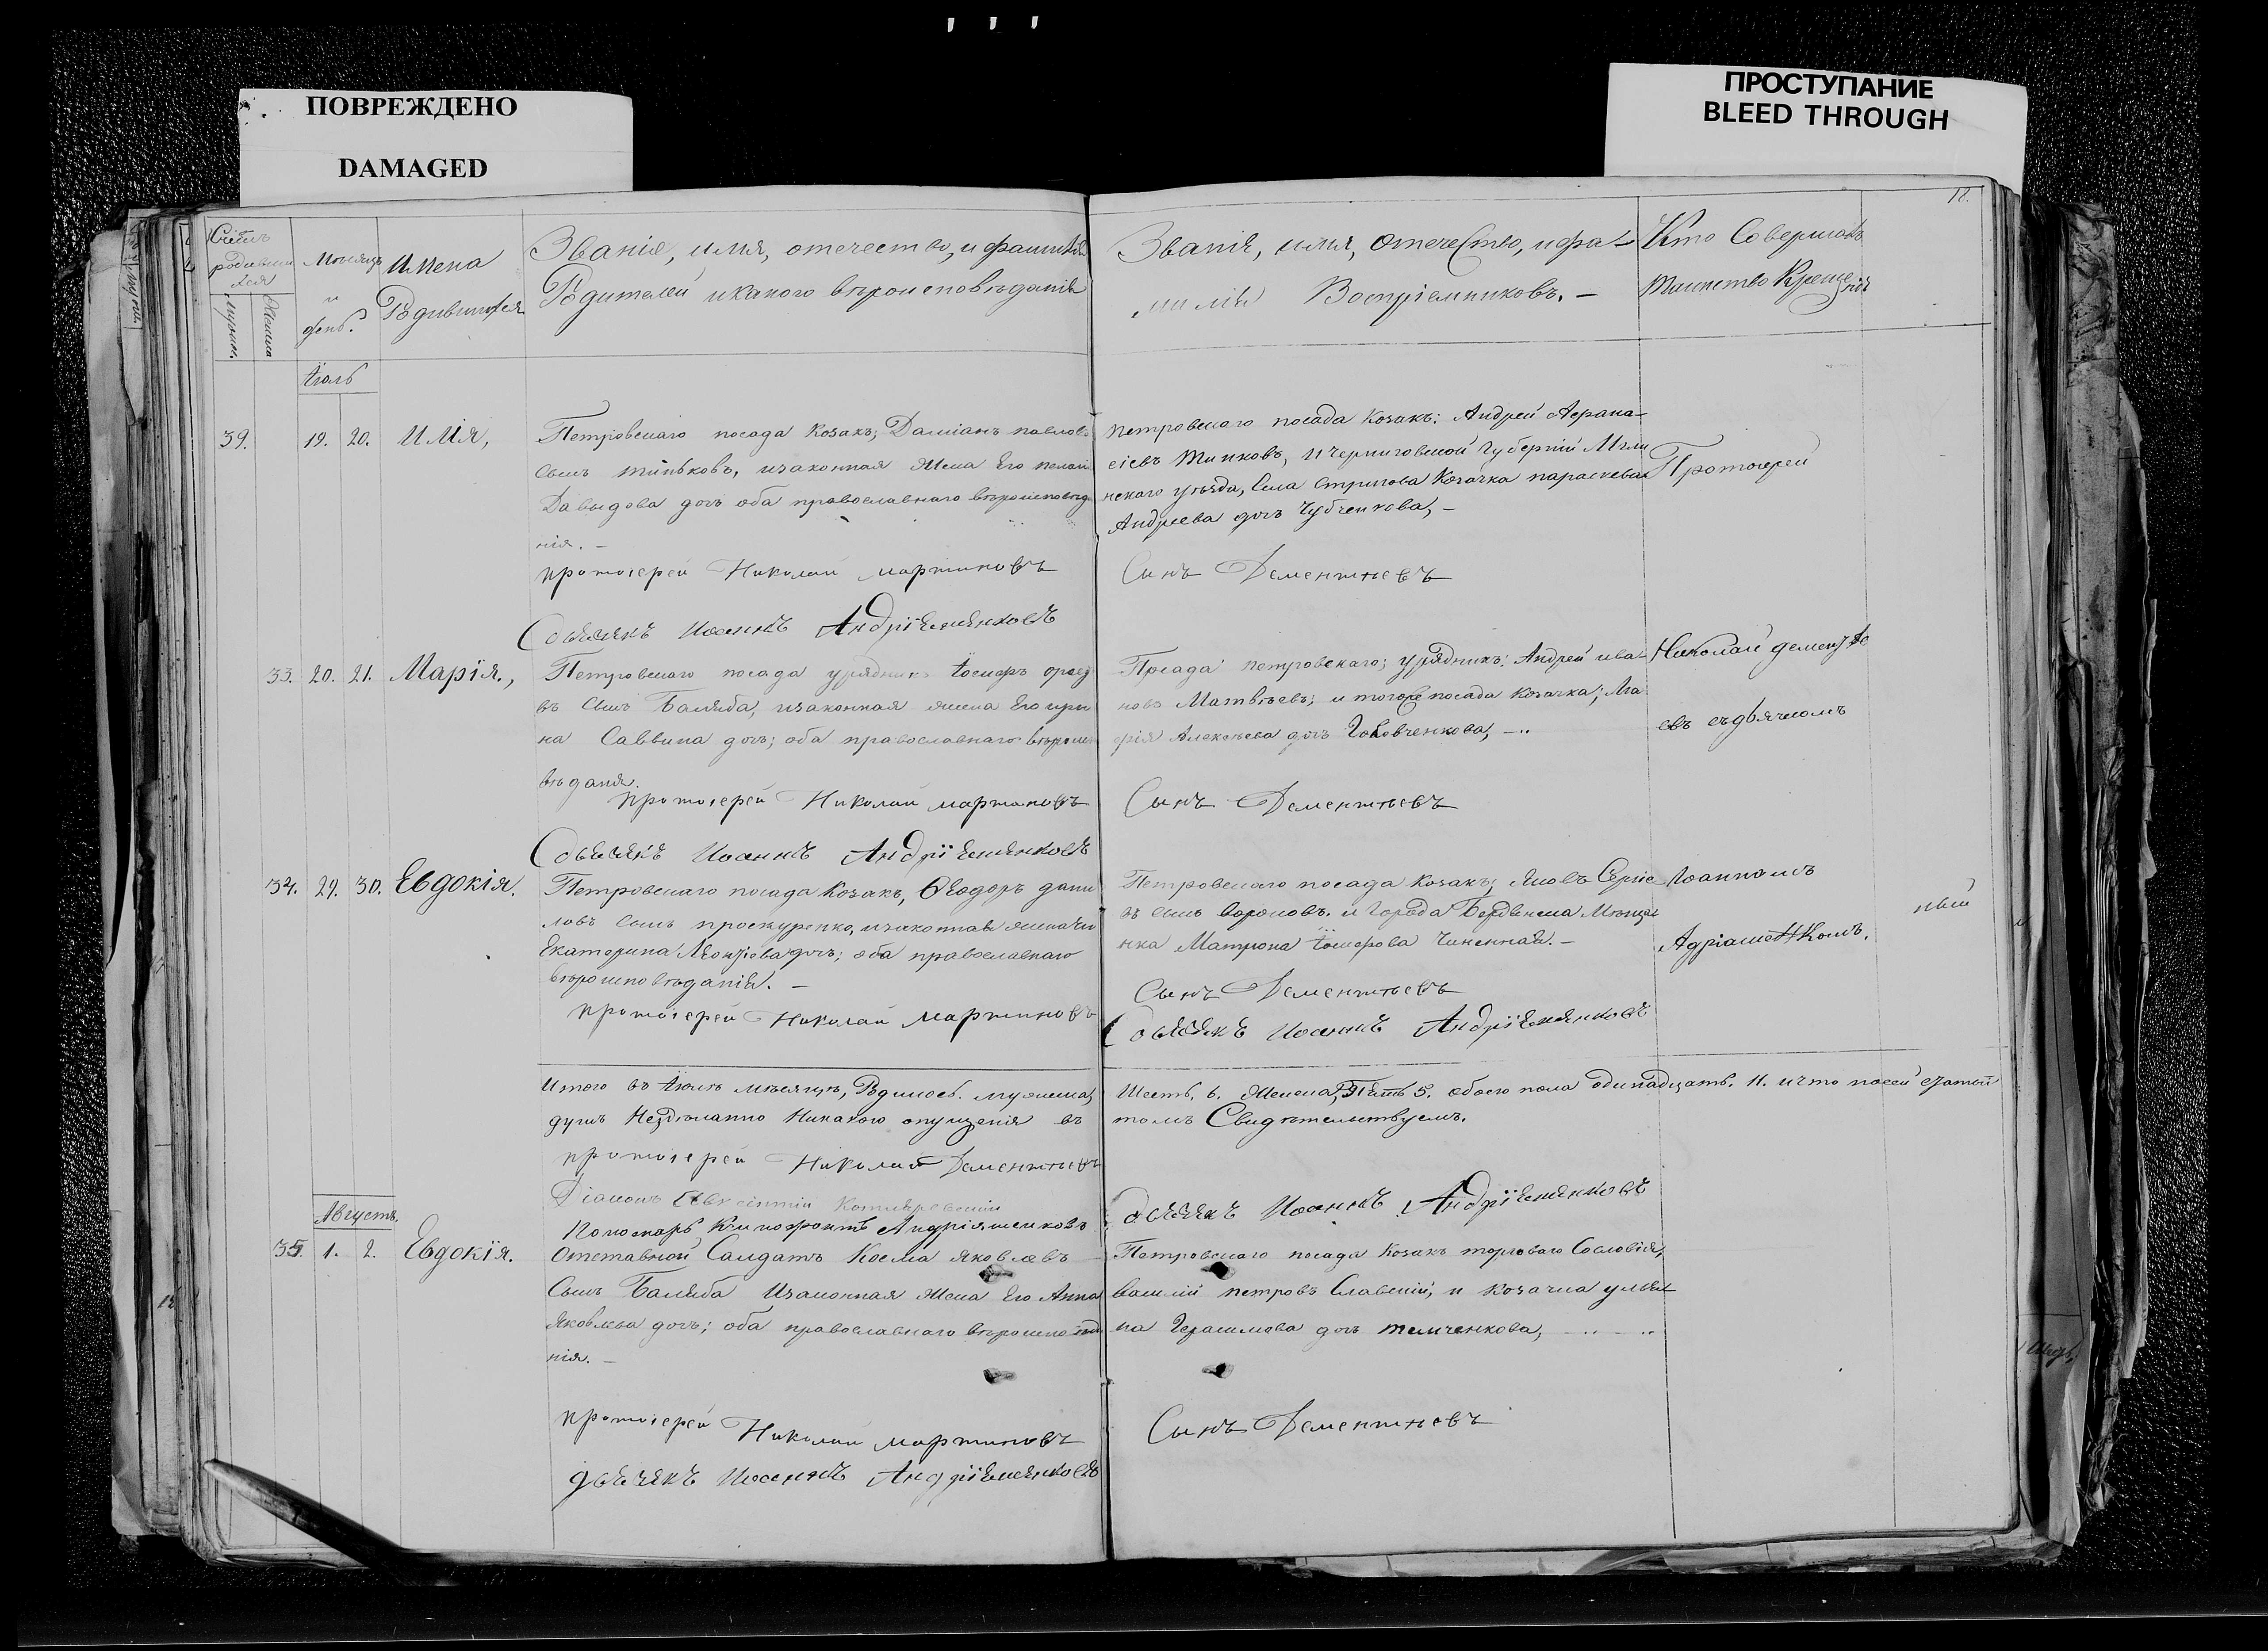 ПОВРЕЖДЕНО
DAMAGED
ПРОСТУПАНИЕ
BLEED THROUGH
18.
Счетъ родившихся
Мужск. Женска
Мѣсяцъ и день.
Имена Родившихся
Званіе, имя, отечество, и фамилія
Родителей и какого вѣроисповѣданія
Званія, имя, отечество, и фа-
милія Воспріемниковъ. –
Кто Совершалъ
таинство Крещенія
Іюль
39. 19. 20. Илія,
Петровскаго посада козакъ; Даміанъ павловъ
сынъ тиньковъ, изаконная жена Его пелагія
Давыдова дочь оба православнаго вѣроисповѣда
нія. –
протоіерей Николай мартиновъ
Дьячекъ Иоаннъ Андріяшенковъ
петровскаго посада козакъ: Андрей Афана-
сіевъ Тинковъ, и Черниговской губерніи Мгли
нскаго уѣзда, села козачка параскева
Андреева дочь Чубченкова, –
Сынъ Дементьевъ
Протоіерей
33. 20. 21. Марія.,
Петровскаго посада урядникъ Іосифъ
въ сынъ Баляба, изаконная жена Его ири
на Саввина дочь; оба православнаго вѣроиспо
вѣданія.
протоіерей Николай мартиновъ
Дьячекъ Иоаннъ Андріяшенковъ
Посада петровскаго; урядникъ: Андрей ива-
новъ Матвѣевъ; и тогоже посада козачка; Ма
рія Алексѣева дочь Головченкова, – ..
Сынъ Дементьевъ
Николай дементь
евъ съдьячкомъ
34. 29. 30. Евдокія.
Петровскаго посада козакъ, Ѳеодоръ дани
ловъ сынъ проскуренко, изаконная жена Его
Екатерина Леонтіева дочь; оба православнаго
вѣроисповѣданія. –
протоіерей Николай мартиновъ
Петровскаго посада козакъ; Яковъ Сергіе
въ сынъ вороновъ. и города Бердянска Мѣща
нка Матрона Іосифова –
Сынъ Дементьевъ
Дьячекъ Иоаннъ Андріяшенковъ
Іоанномъ
Адріашенкомъ.
Итого въ Іюлѣ мѣсяцѣ, Родилось. мужеска
Шесть. 6. Женска, Пять 5. обоего пола одинадцать. 11. и что посей статьи
душъ Нездѣланно Никакого опущенія въ
томъ Свидѣтельствуемъ.
протоіерей Николай Дементьевъ
Діаконъ Котляревскій
Пономарь Ксинофонтъ Андріяшенковъ
Дьячекъ Иоаннъ Андріяшенковъ
Августъ.
35. 1. 2. Евдокія.
Отставной Салдатъ Косма Яковлевъ
Сынъ Баляба Изаконная Жена Его Анна
Яковлева дочь; оба православнаго вѣроисповѣда
нія. –
протоіерей Николай мартиновъ
дьячекъ Иоаннъ Андріяшенковъ
Петровскаго посада козакъ торговаго Сословія,
василій петровъ Славскій, и козачка улья
на Герасимова дочь темченкова, – .. – ..
Сынъ Дементьевъ